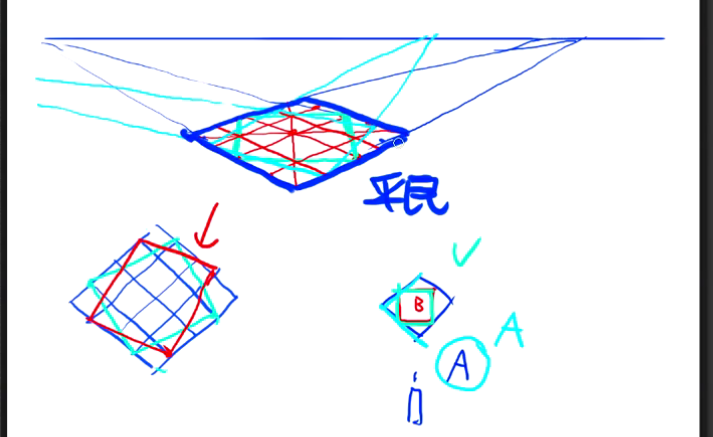 平民
B
A A